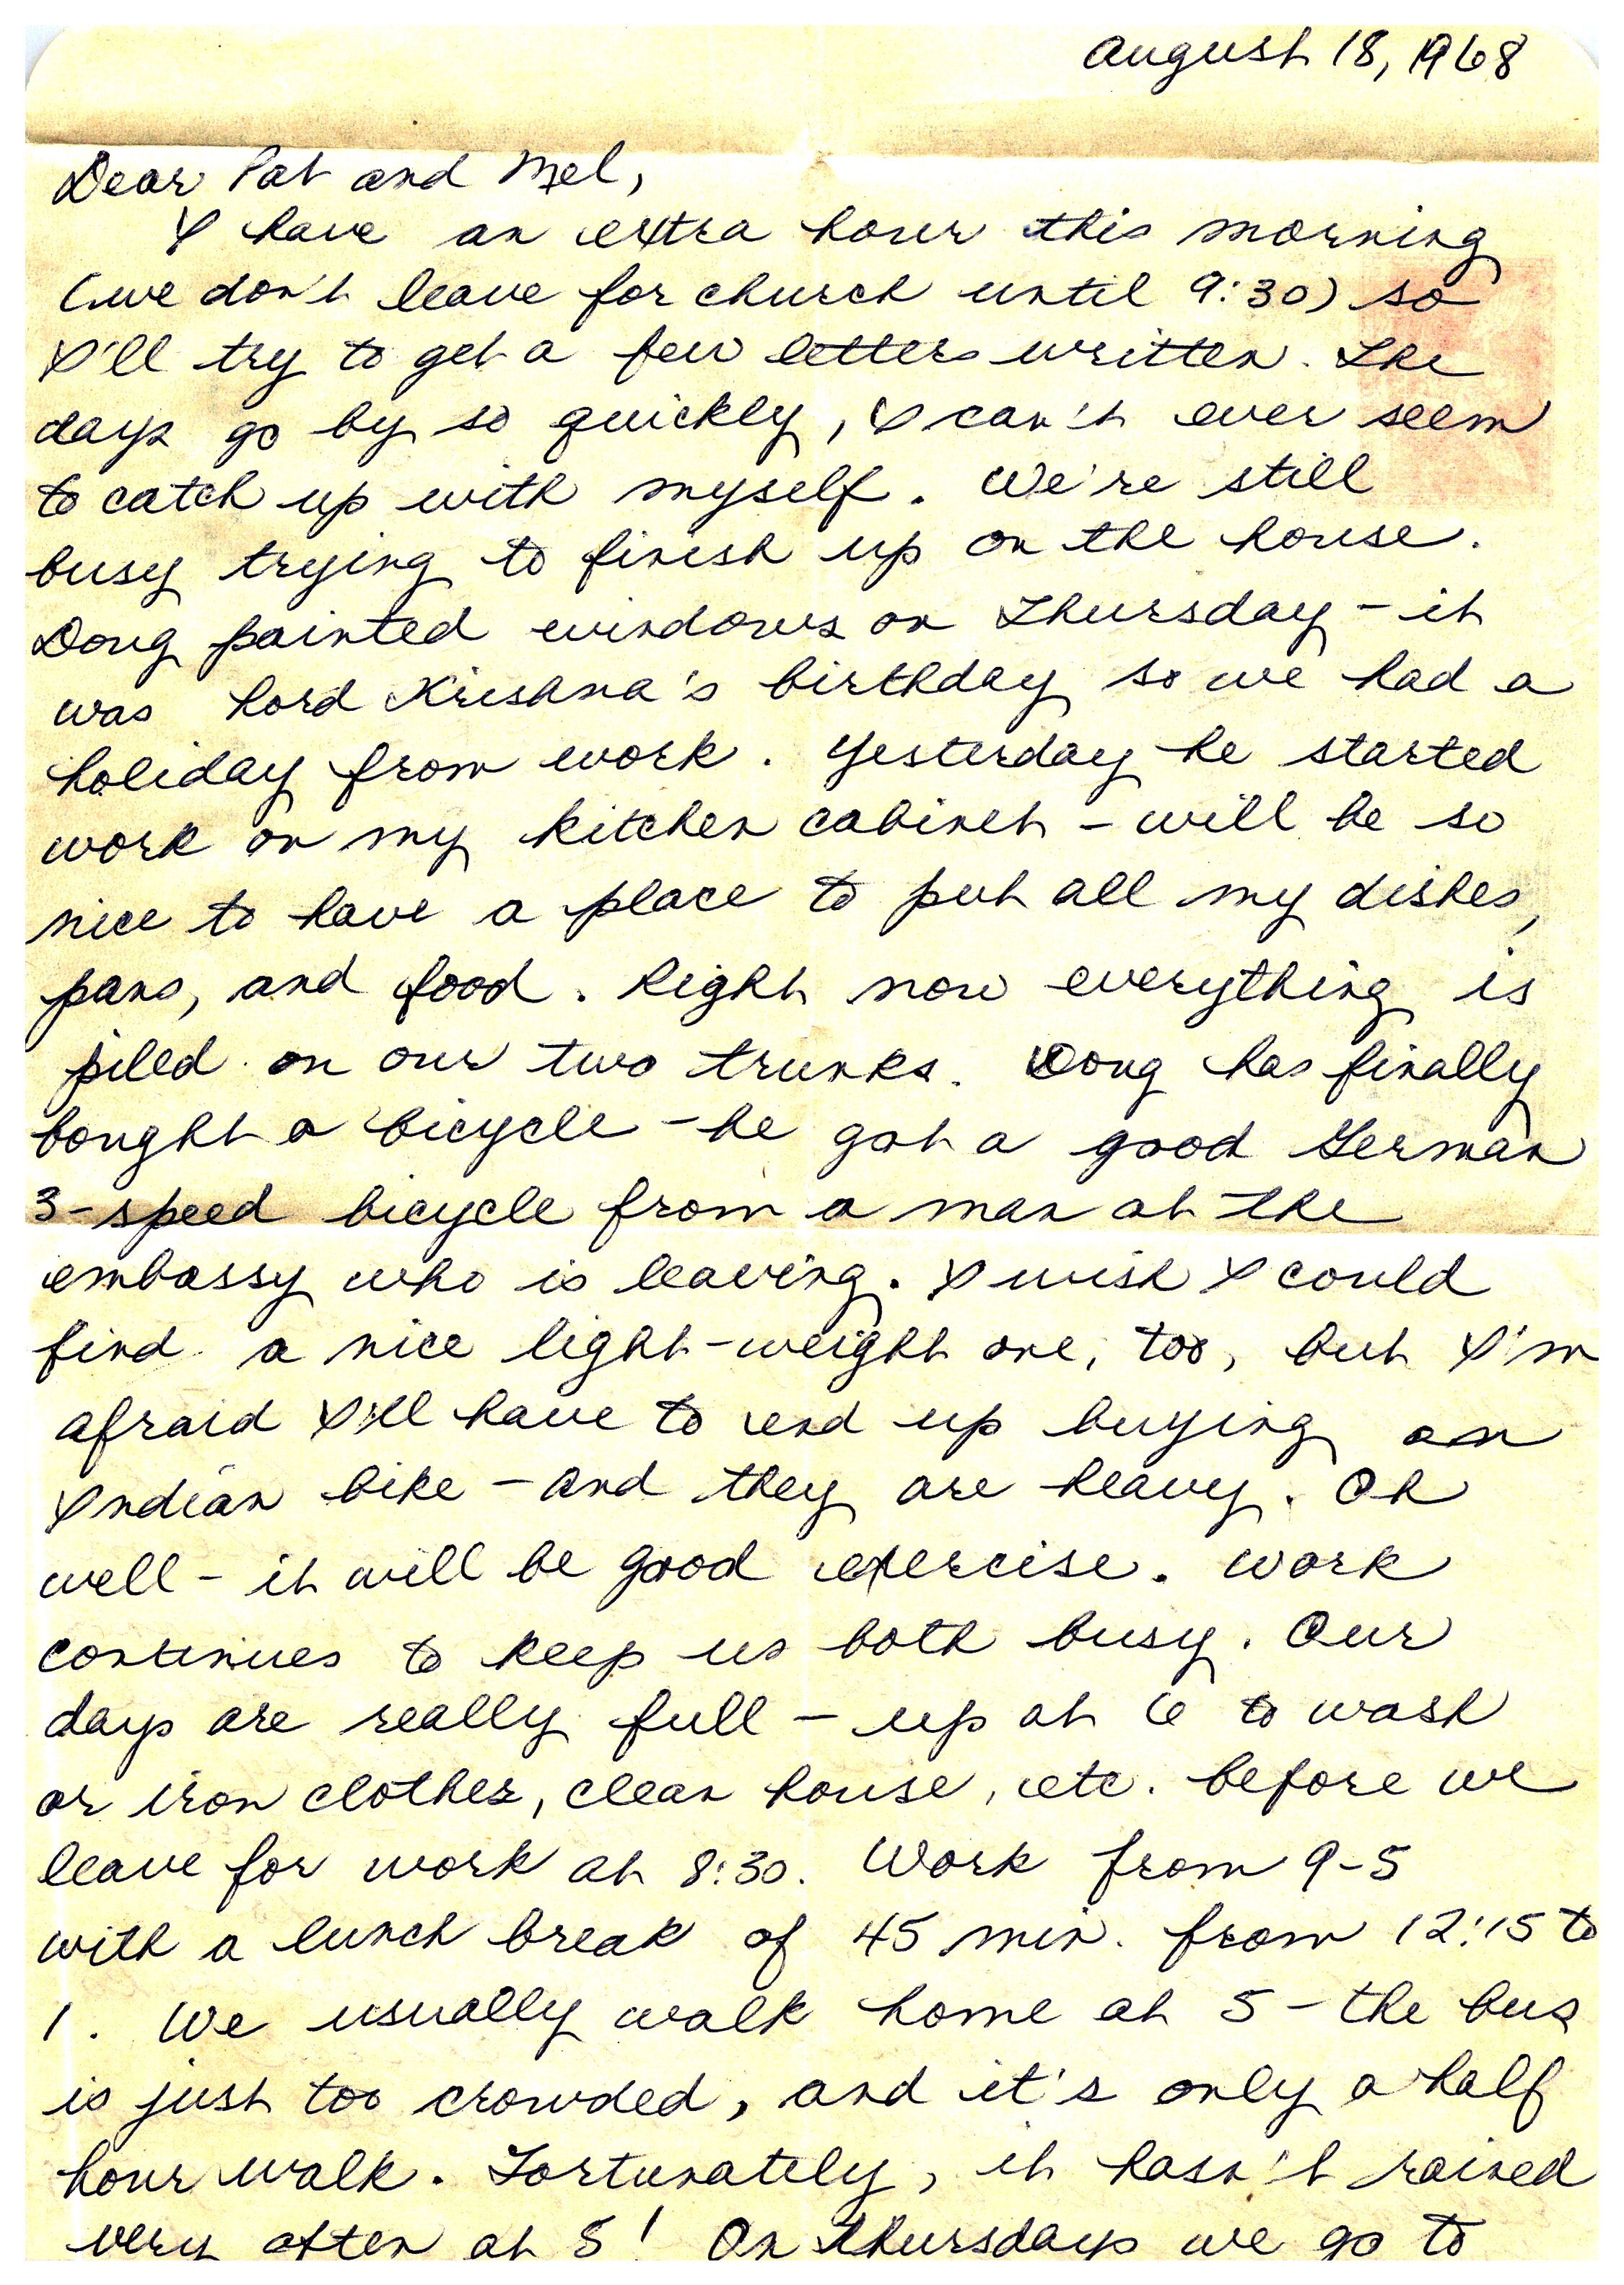 August 18, 1968
Dear Pat and Mel,
I have an extra hour this morning
(we don't leave for church until 9:30) so
I'll try to get a few letters written. The
days go by so quickly, I can't ever seem
to catch up with myself. We're still
busy trying to finish up on the house.
Doug painted windows on Thursday - it
was Lord Krishna's birthday so we had a
holiday from work. Yesterday he started
work on my kitchen cabinet - will be so
nice to have a place to put all my dishes,
pans, and food. Right now everything is
piled on our two trunks. Doug has finally
bought a bicycle - he got a good German
3-speed bicycle from a man at the
embassy who is leaving. I wish I could
find a nice light-weight one, too, but I'm
afraid I'll have to end up buying an
Indian bike - and they are heavy. Oh
well - it will be good exercise. Work
continues to keep us both busy. Our
days are really full - up at 6 to wash
or iron clothes, clean house, etc. before we
leave for work at 8:30. Work from 9-5
with a lunch break of 45 min. from 12:15 to
1. We usually walk home at 5 - the bus
is just too crowded, and it's only a half
hour walk. Fortunately, it hasn't rained
very often at 5! On Thursdays we go to